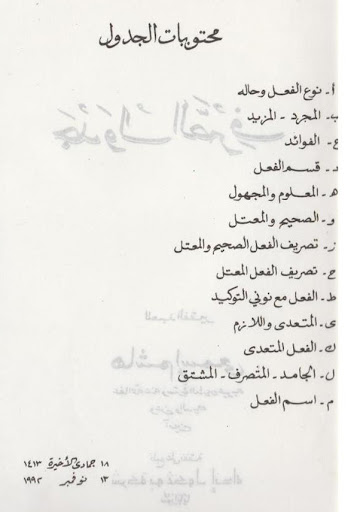 محتويات الجدول
أ - نوع الفعل وحاله
ب - المجرد - المزيد
ج - الفوائد
د - قسم الفعل
هـ - المعلوم والمجهول
و - الصحيح والمعتل
ز - تصريف الفعل الصحيح والمعتل
ح - تصريف الفعل المعتل
ط - الفعل مع نوني التوكيد
ى - المتعدى واللازم
ك - الفعل المتعدى
ل - الجامد - المتصرف - المشتق
م - اسم الفعل
١٨ جمادى الأخيرة ١٤١٣
١٣ نوفمبر ١٩٩٢